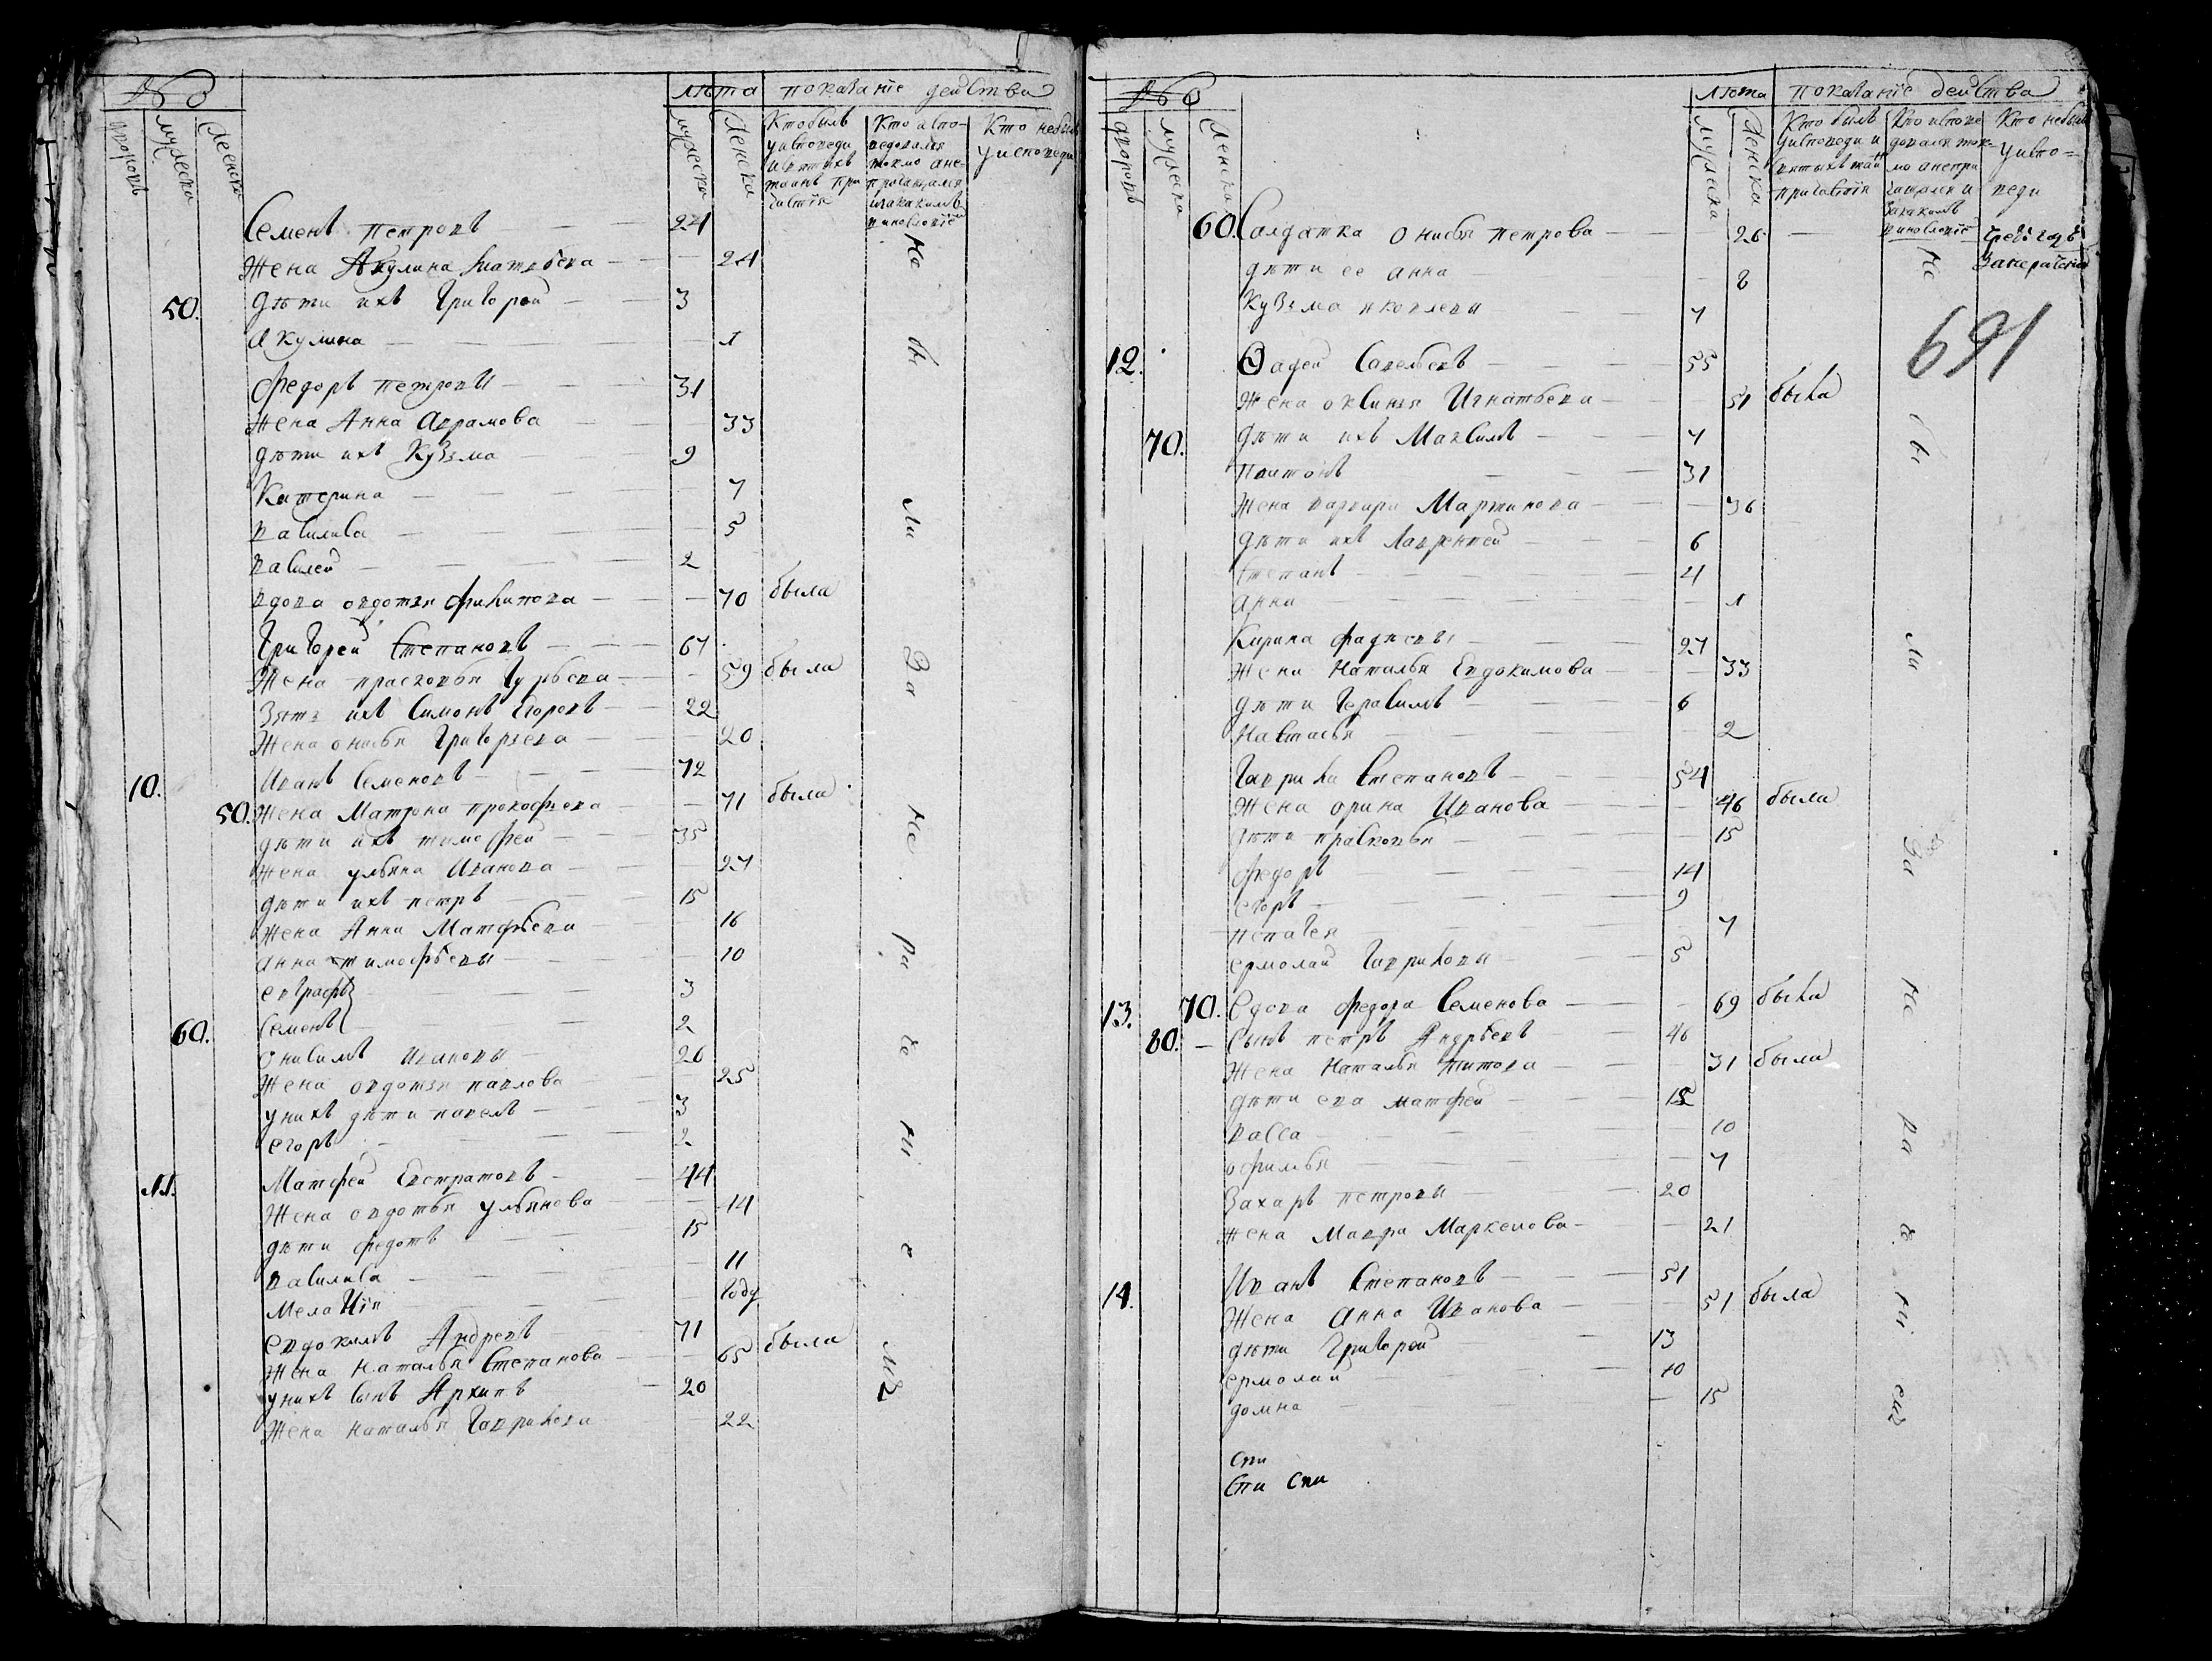 №
лѣта показание действа
дворовъ
мужеска
женска
мужеска
женска
Кто былъ у исповеди и святыхъ таинъ причастия
Кто исповедался токмо а не причащался и за какимъ виновпие
Кто не былъ у исповеди
Семенъ Петровъ 24
жена Акулина Матвѣева 24
50. дѣти ихъ Григорей 3
Акулина 1
Федоръ Петровы 31
жена Анна Аврамова 33
дѣти ихъ Кузма 9
Катерина 7
Василиса 5
Василей 2
вдова овдотья Филипова 70 была
Григорей Степановъ 67
жена прасковья Гурьева 59 была
Зять ихъ Симонъ Егоровъ 22
Жена онисья Григорьева 20
10. Иванъ Семеновъ 72
50. Жена Матрона прокофьева 71 была
дѣти ихъ тимофей 35
жена ульяна Иванова 27
дѣти ихъ петръ 15
жена Анна Матфѣева 16
анна тимофѣевы 10
евграфъ 3
60. Семенъ 2
Онисимъ ивановы 26
жена овдотья павлова 25
у нихъ дѣти павелъ 3
егоръ 2
11. Матфей Евстратовъ 44
жена овдотья ульянова 44
дѣти федотъ 15
василиса 11
Меланія году
евдокимъ Андревъ 71
жена наталья Степанова 65 была
у нихъ сынъ Архипъ 20
жена наталья Гаврилова 22
не бы ли за не ра че ни е мъ
№
лѣта показаніе действа
дворовъ
мужеска
женска
мужеска
женска
Кто былъ у исповеди и святыхъ таинъ причастія
Кто исповедался токмо а не причащался и за какимъ виновпие
Кто не былъ у исповеди
60. Салдатка онисья петрова 26
дѣти ее анна 8
Кузьма яковлевы 7
691
12. Фадей Савельевъ 55
жена оксинья Игнатьева 51 была
70. дѣти ихъ Максимъ 7
платонъ 31
жена варвара Мартинова 36
дѣти ихъ Лаврентей 6
степанъ 4
анна 1
Кирила фадѣевы 27
жена Наталья Евдокимова 33
дѣти Герасимъ 6
Настасья 2
Гаврила Степановъ 54
жена орина Иванова 46 была
дѣти прасковья 15
Федоръ 14
егоръ 9
пелагея 7
ермолай Гавриловы 5
13. 70. вдова федора Семенова 69 была
80. Сынъ петръ Андрѣевъ 46
жена Наталья титова 31 была
дѣти ева матфей 15
васса 10
офимья 7
Захаръ петровы 20
жена Мавра Маркелова 21
14. Иванъ Степановъ 51
жена анна Иванова 51 была
дѣти Григорей 13
ермолай 10
домна 15
спи
Спи спи
не бы ли за не ра че ни емъ